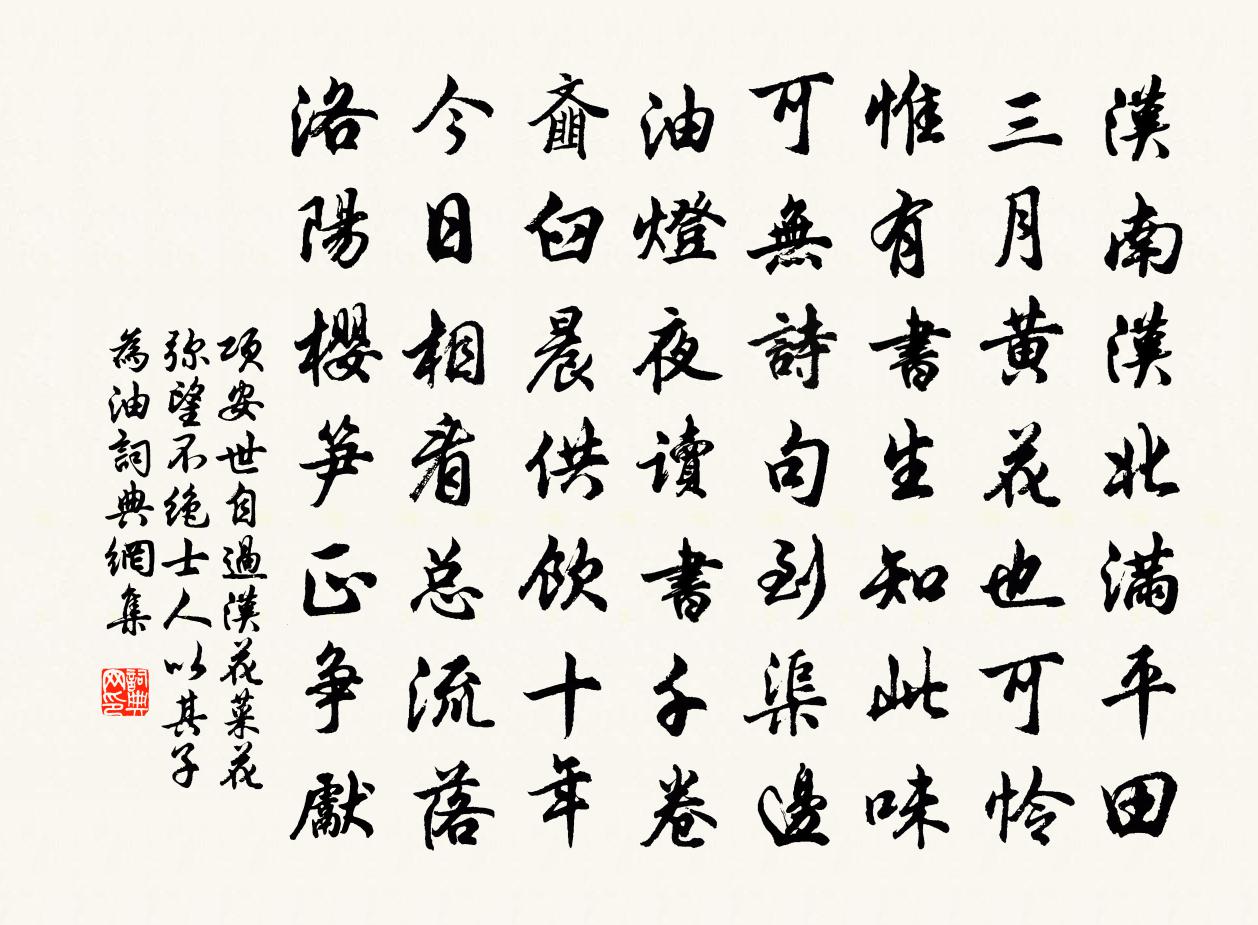 漢南漢北滿平田
三月黄花也可怜
惟有書生知此味
可無詩句到渠邊
油燈夜讀書千卷
齑臼晨供飲十年
今日相看总流落
洛陽櫻笋正争獻
項安世自過漢花菜花
弥望不绝士人以其子
為油詞典網集
詞典网印